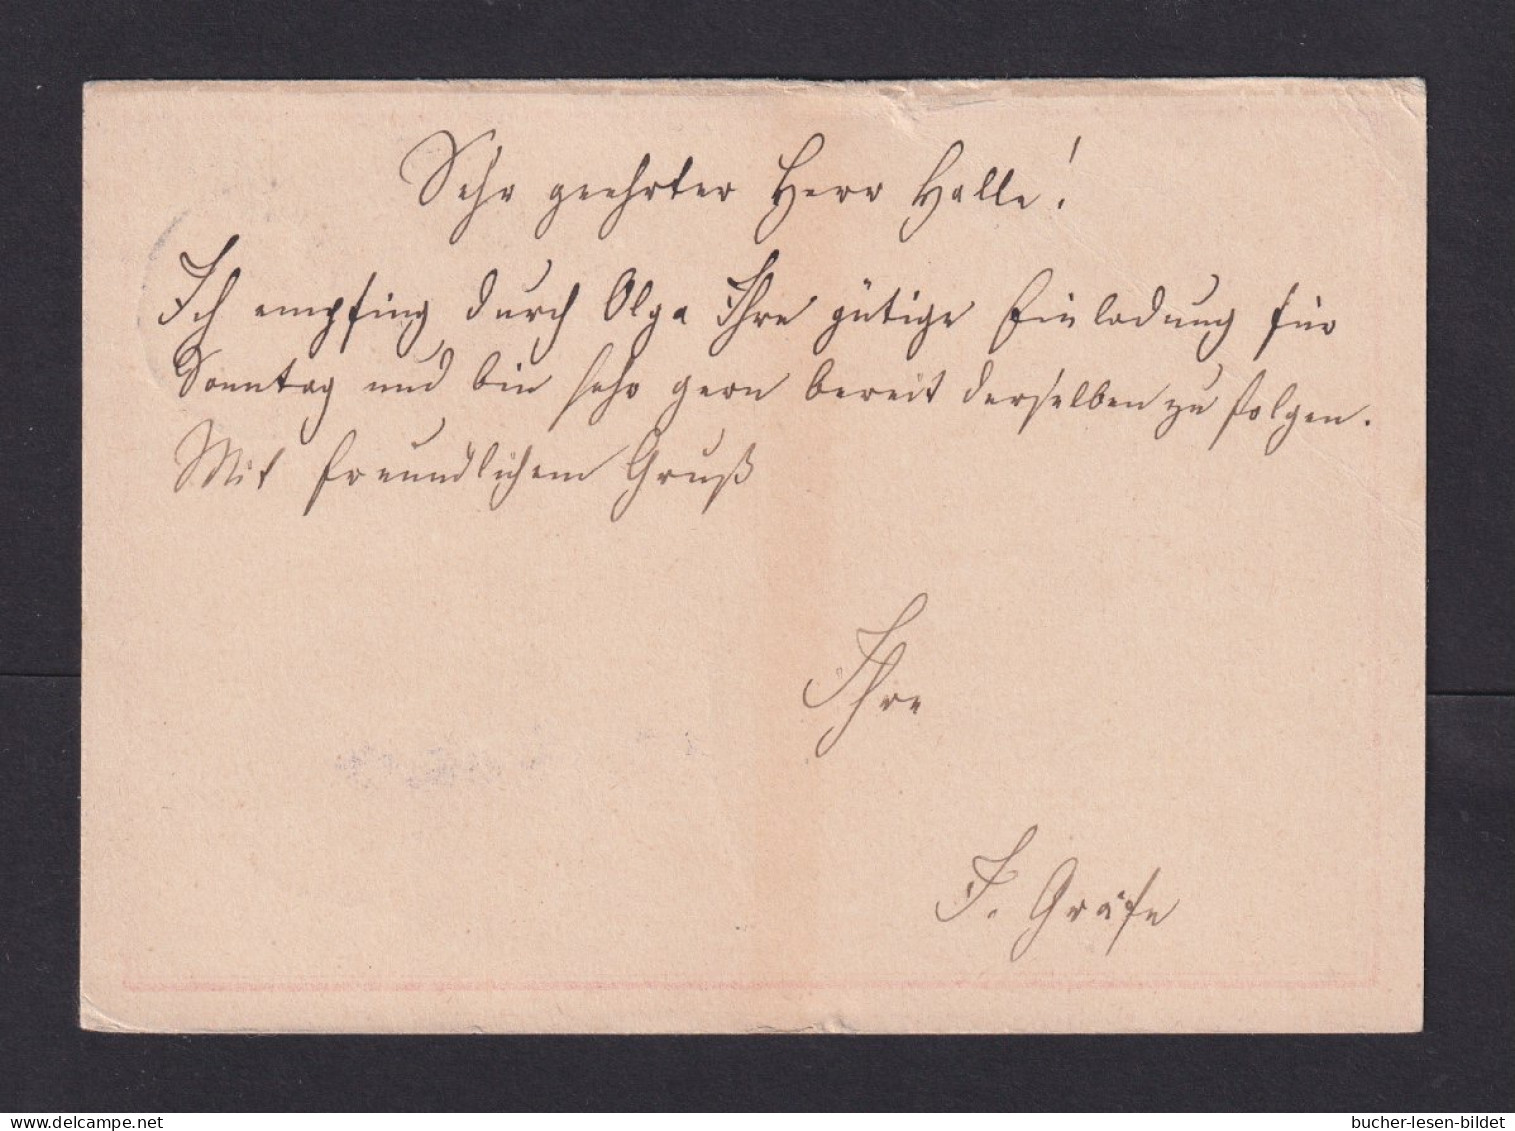 Sehr geehrter Herr Halle!
Ich empfing durch Olga Ihre gütige Einladung für
Sonntag und bin sehr gern bereit derselben zu folgen.
Mit freundlichem Gruß
Ihre
J. Gräfe
www.delcampe.net
bucher-lesen-bildet